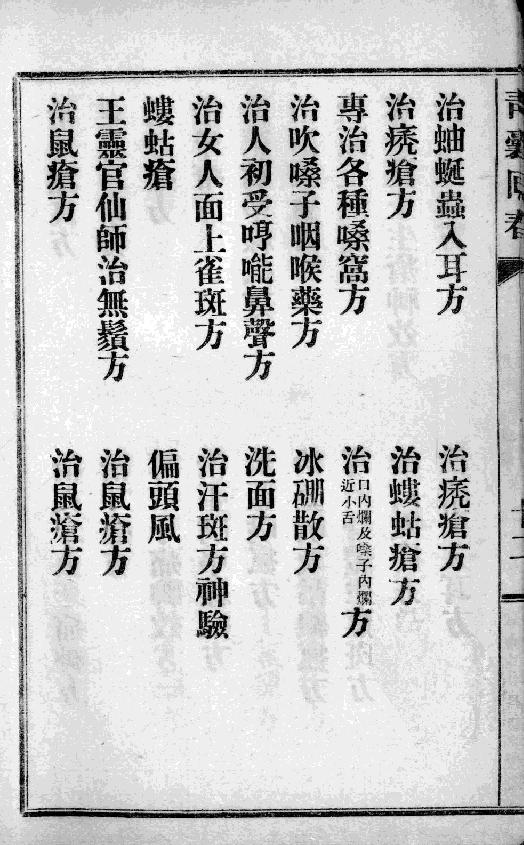 治蚰蜒蟲入耳方
治痜瘡方
治痜瘡方
治螻蛄瘡方
專治各種嗓窩方
治口內爛及嗓子內爛近小舌方
治吹嗓子咽喉藥方
冰硼散方
治人初受哼㘄鼻聲方
洗面方
治女人面上雀斑方
治汗斑方神驗
螻蛄瘡
偏頭風
王靈官仙師治無鬚方
治鼠瘡方
治鼠瘡方
治鼠瘡方